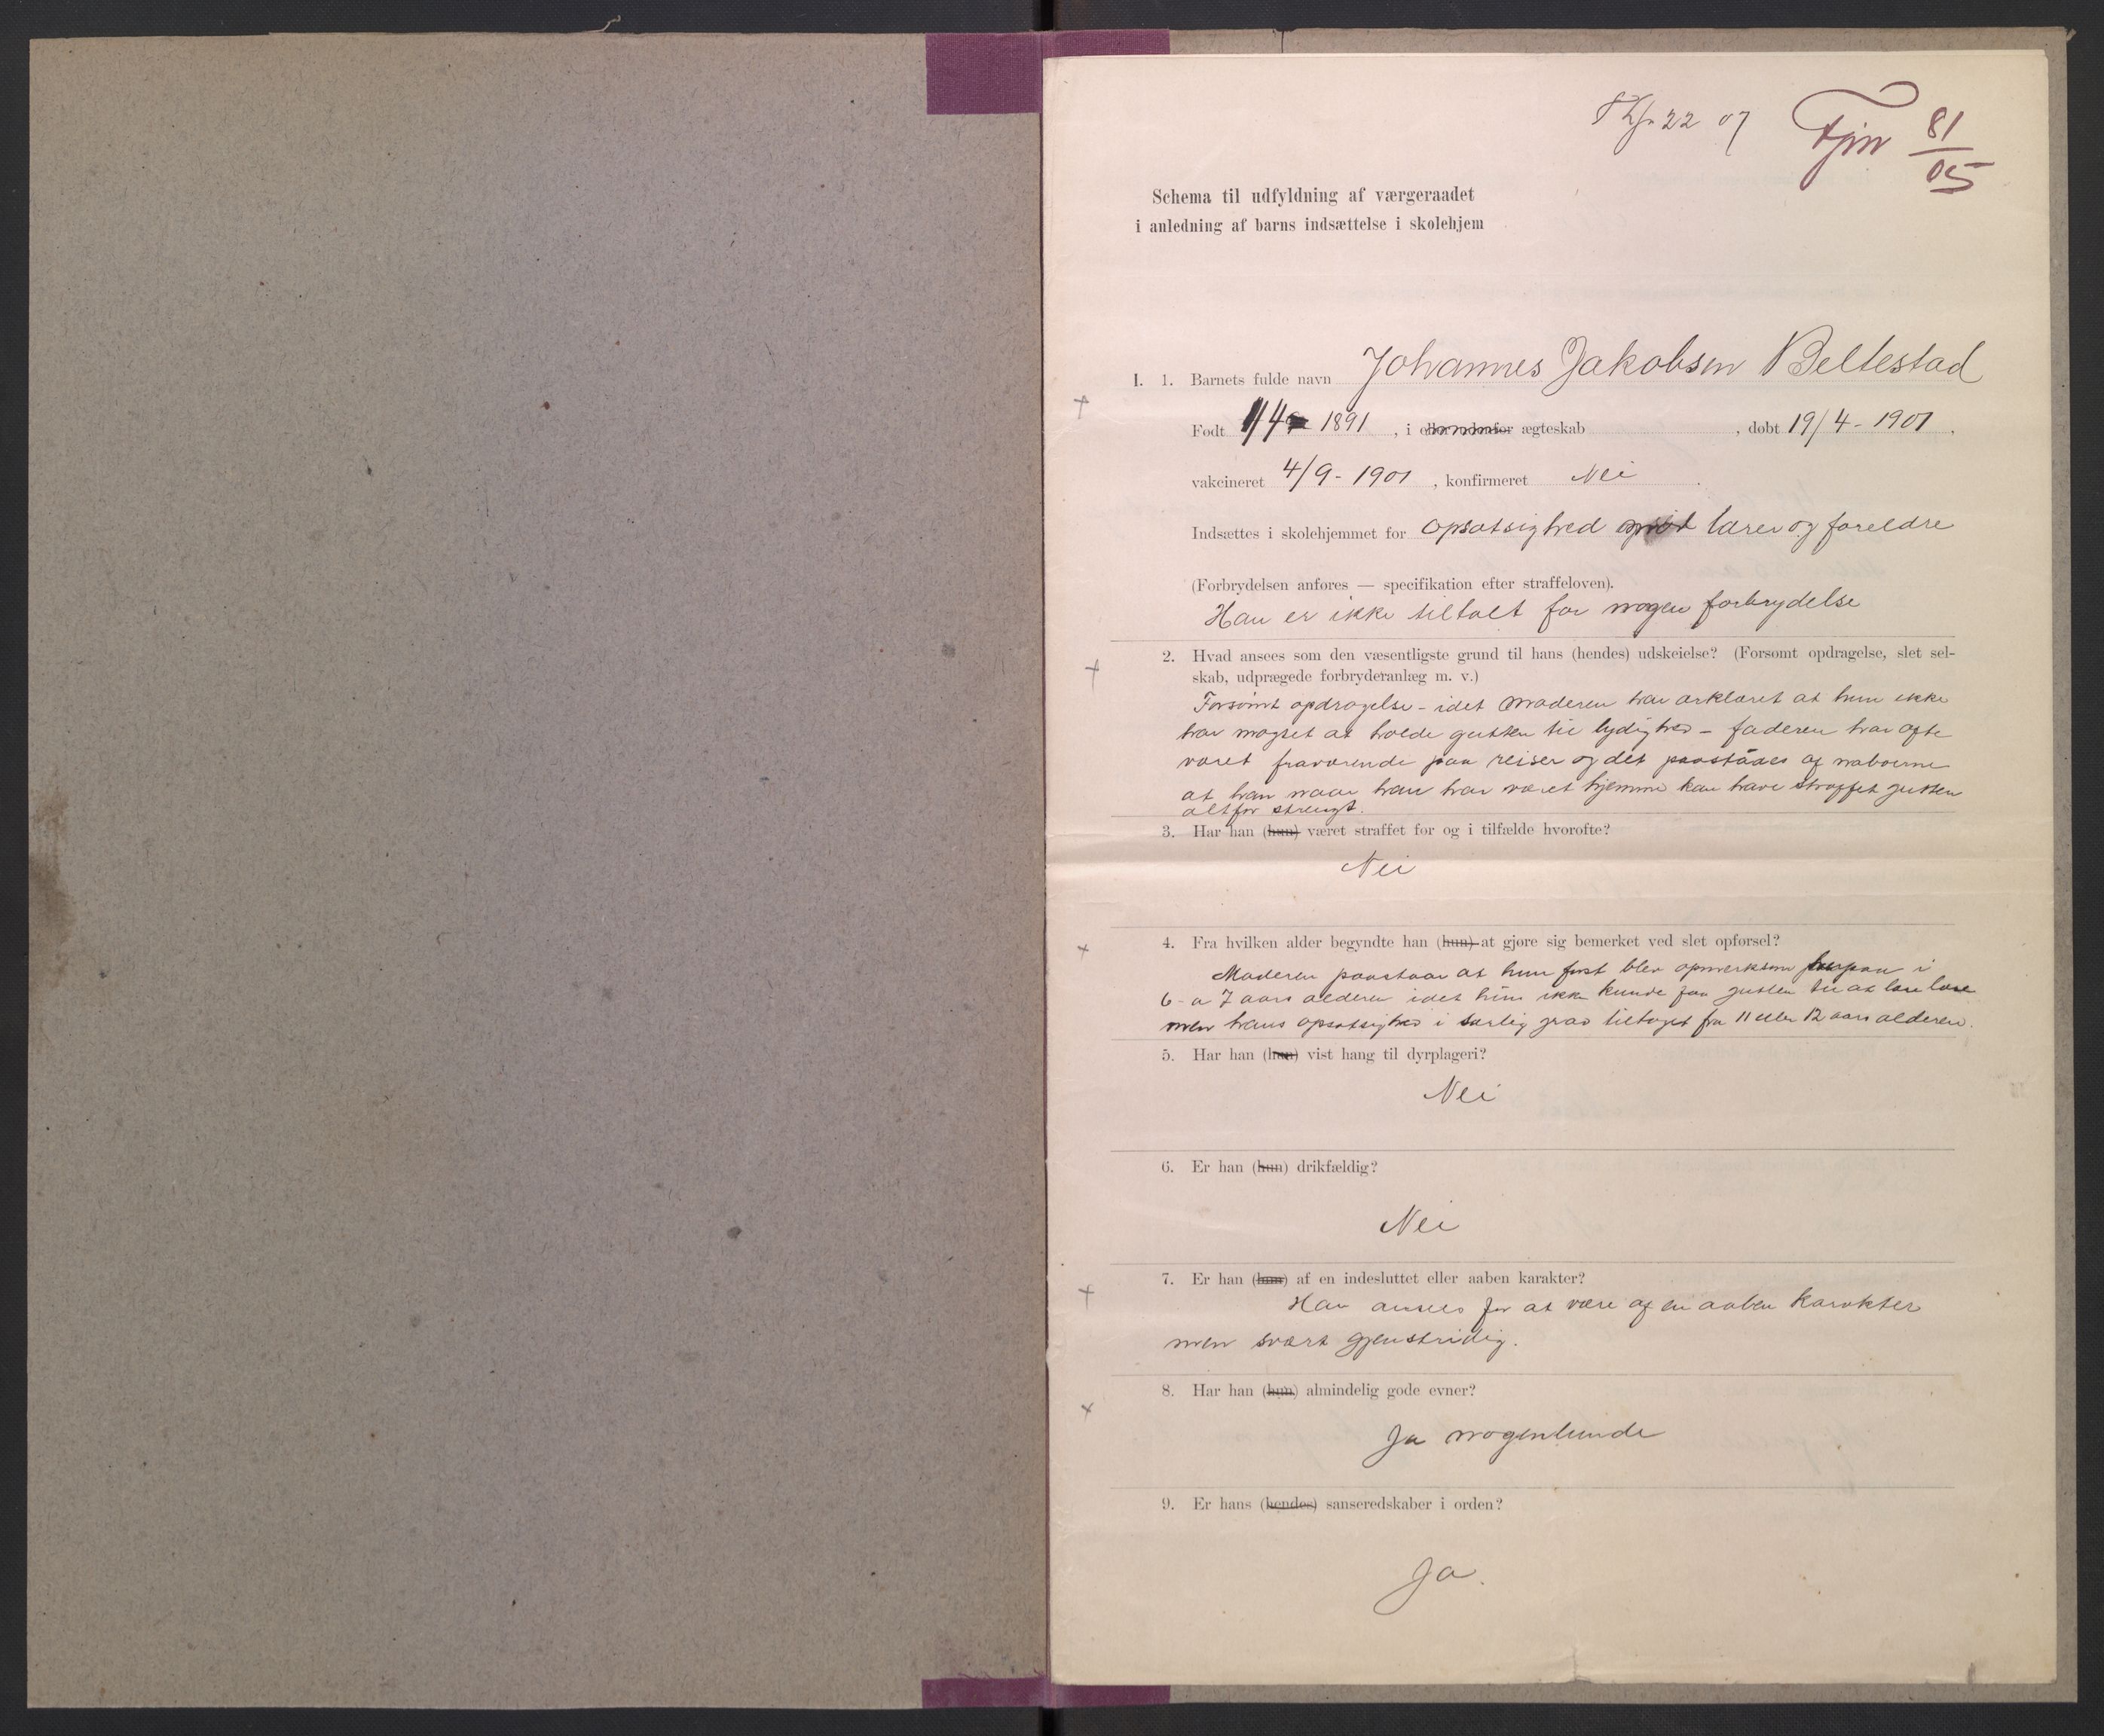 22 07 Fjm 81/05
Schema til udfyldning af værgeraadet
i anledning af barns indsættelse i skolehjem
I. 1. Barnets fulde navn Johannes Jakobsen Beltestad
Født 1/4 1891, i eller udenfor ægteskab , døbt 19/4 - 1901.
vakcineret 4/9 - 1901, konfirmeret Nei.
Indsættes i skolehjemmet for opsatsighed mod lærer og foreldre
(Forbrydelsen anføres — specifikation efter straffeloven).
Han er ikke tiltalt for nogen forbrydelse
2. Hvad ansees som den væsentligste grund til hans (hendes) udskeielse? (Forsømt opdragelse, slet sel-
skab, udprægede forbryderanlæg m. v.)
Forsømt opdragelse - idet Moderen har erklæret at hun ikke
har magtet at holde gutten til lydighed - faderen har ofte
været fraværende paa reiser og det paastaaes af naboerne
at han naar han har været hjemme kan have straffet gutten
altfor strengt.
3. Har han (hun) været straffet for og i tilfælde hvorofte?
Nei
4. Fra hvilken alder begyndte han (hun) at gjøre sig bemerket ved slet opførsel?
Moderen paastaar at hun først blev opmerksom herpaa i
6 - a 7 aars alderen idet hun ikke kunde faa gutten til at lese
men hans opsatsighed i særlig grad tiltaget fra 11 eller 12 aars alderen.
5. Har han (hun) vist hang til dyrplageri?
Nei
6. Er han (hun) drikfældig?
Nei
7. Er han (hun) af en indesluttet eller aaben karakter?
Han ansees for at være af en aaben karakter
men svært gjenstridig.
8. Har han (hun) almindelig gode evner?
Ja nogenlunde
9. Er hans (hendes) sanseredskaber i orden?
Ja.